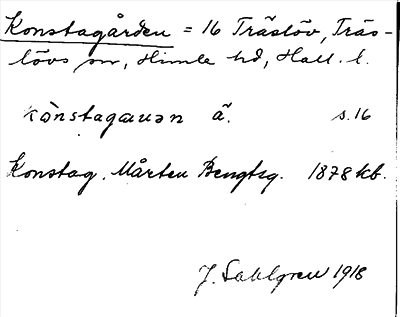 Konstagården = 16 Träslöv, Träs-
lövs sn, Himle hd, Hall. l.
kònstagaɯən ä. s. 16
Konstag. Mårten Bengtsg. 1878 kb.
J. Sahlgren 1918